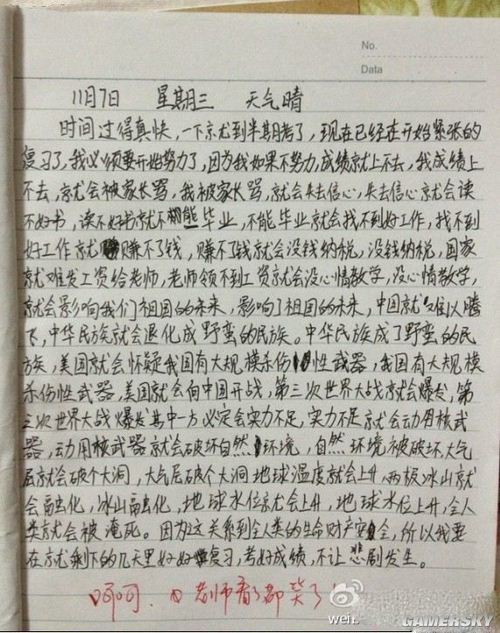 No.
Data
11月7日 星期三 天气晴
时间过得真快,一下就到半期考了,现在已经开始紧张的
复习了,我必须要开始努力了,因为我如果不努力,成绩就上不去,我成绩上
不去,就会被家长骂,我被家长骂,就会失去信心,失去信心就会读
不好书,读不好书就不能毕业,不能毕业就会找不到好工作,找不到
好工作就赚不了钱,赚不了钱就会没钱纳税,没钱纳税,国家
就难发工资给老师,老师领不到工资就会没心情教学,没心情教学,
就会影响我们祖国的未来,影响了祖国的未来,中国就难以腾
飞,中华民族就会退化成野蛮的民族。中华民族成了野蛮的民
族,美国就会怀疑我国有大规模杀伤性武器,我国有大规模
杀伤性武器,美国就会向中国开战,第三次世界大战就会爆发,第
三次世界大战爆发其中一方必定会实力不足,实力不足就会动用核武
器,动用核武器就会破坏自然环境,自然环境被破坏,大气
层就会破个大洞,大气层破个大洞地球温度就会上升,两极冰山就
会融化,冰山融化,地球水位就会上升,地球水位上升,全人
类就会被淹死。因为这关系到全人类的生命财产安全,所以我要
在就剩下的几天里好好复习,考好成绩,不让悲剧发生。
呵呵,老师看了都笑了
wei
GAMERSKY